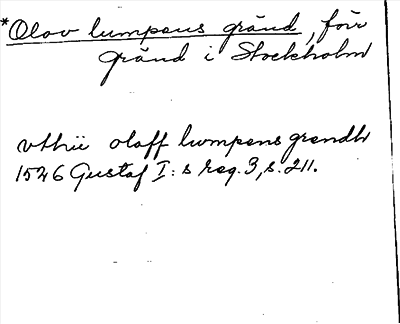 *Olov lumpens gränd, förr
gränd i Stockholm
vthii olaff lwmpens grendh
1526 Gustaf I:s reg. 3, s. 211.